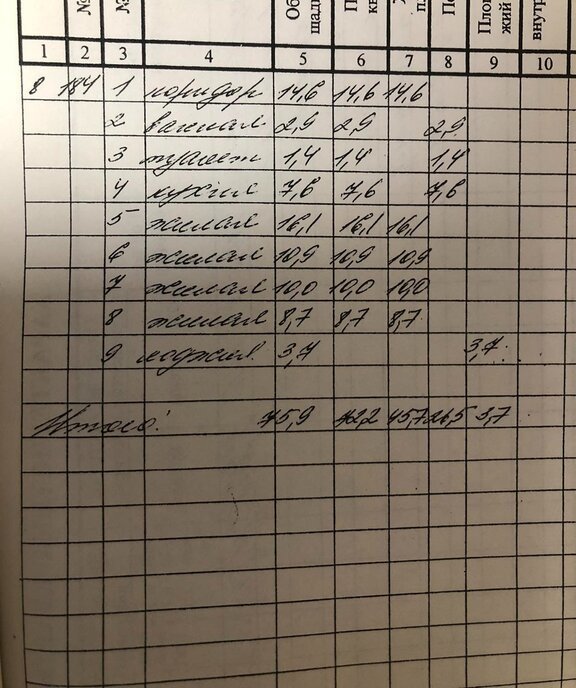 № № Об щадь П кв п По Площ жий внутр
1 2 3 4 5 6 7 8 9 10
8 184 1 коридор 14,6 14,6 14,6
2 ванная 2,9 2,9 2,9
3 туалет 1,4 1,4 1,4
4 кухня 7,6 7,6 7,6
5 жилая 16,1 16,1 16,1
6 жилая 10,9 10,9 10,9
7 жилая 10,0 10,0 10,0
8 жилая 8,7 8,7 8,7
9 лоджия 3,7 3,7
Итого: 75,9 72,2 45,7 26,5 3,7